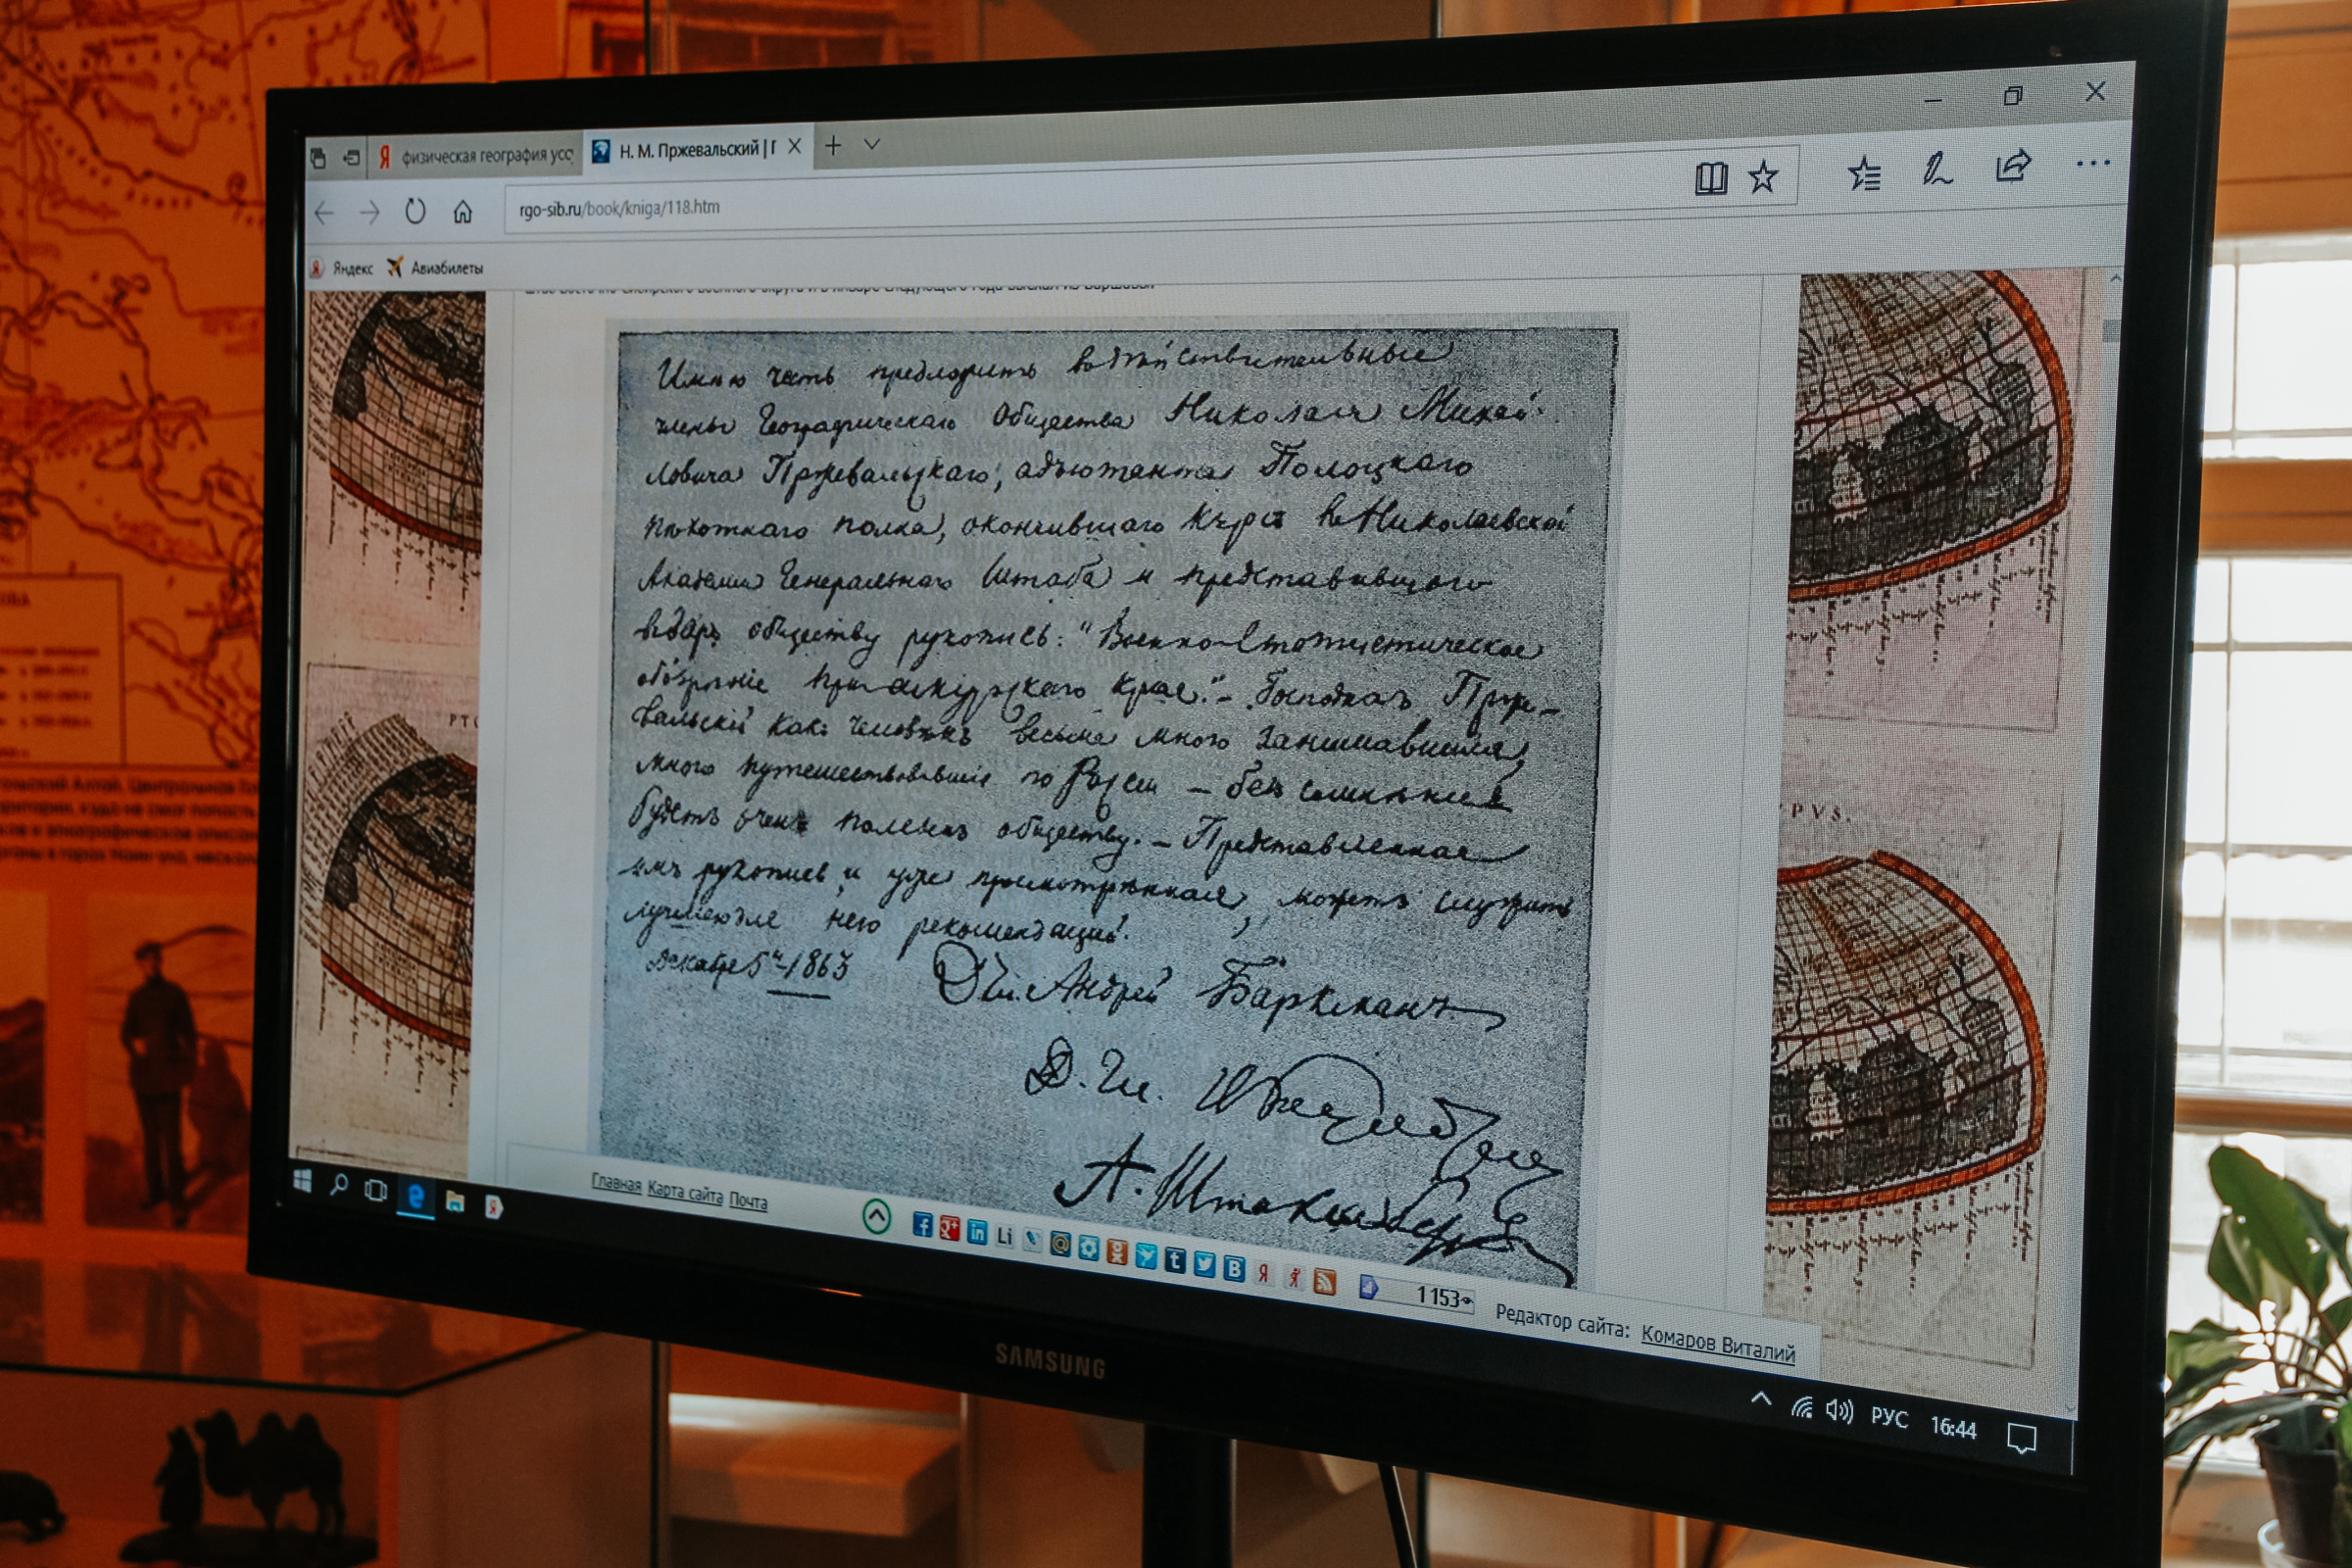 физическая география усс
Н. М. Пржевальский | Г
rgo-sib.ru/book/kniga/118.htm
Яндекс Авиабилеты
Имѣю честь предложить въ дѣйствительные
члены Географическаго Общества Николая Михай-
ловича Пржевальскаго, адъютанта Полоцкаго
пѣхотнаго полка, окончившаго курсъ въ Николаевской
Академіи Генеральнаго Штаба и представившаго
въ даръ обществу рукопись: "Военно-Статистическое
обозрѣніе Приамурскаго Края." – Господинъ Прже-
вальскій какъ человѣкъ весьма много занимавшійся,
много путешествовавшій по Россіи – безъ сомнѣнія
будетъ очень полезенъ обществу. – Представленная
имъ рукопись, и уже просмотрѣнная, можетъ служить
лучшею для него рекомендаціей.
Декабря 5го 1863 Д. Чл. Андрей Баркманъ
Д. Чл.
А. Штакельбергъ
PTO
YPVS.
Главная Карта сайта Почта
1153
Редактор сайта: Комаров Виталий
РУС 16:44
SAMSUNG